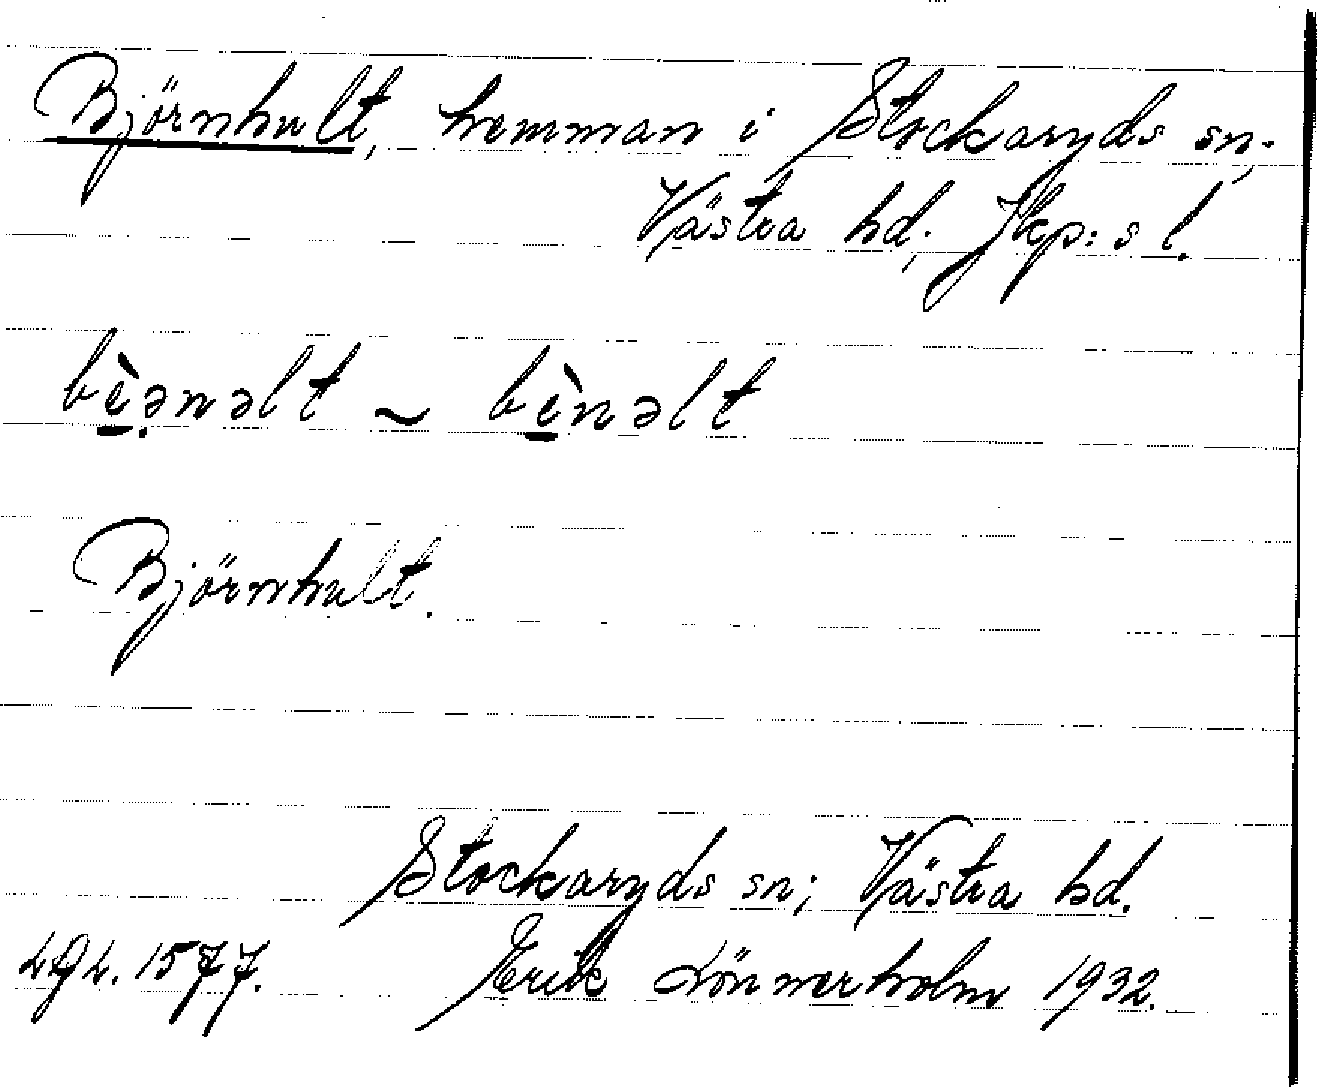 Björnhult, hemman i Stockaryds sn,
Västra hd, Jkp:s l.
bè̱ə̣nəlt ~ bè̱nəlt
Björnhult.
Stockaryds sn; Västra hd.
Lgl. 1577. Erik Lönnerholm 1932.